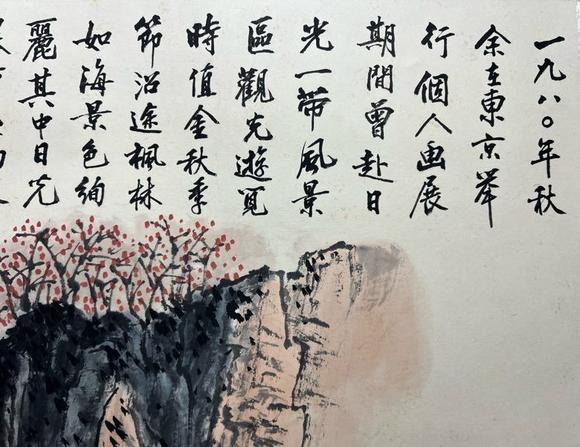 一九八〇年秋
余在東京举
行個人画展
期間曾赴日
光一带風景
區觀光遊覓
時值金秋季
節沿途楓林
如海景色絢
麗其中日光